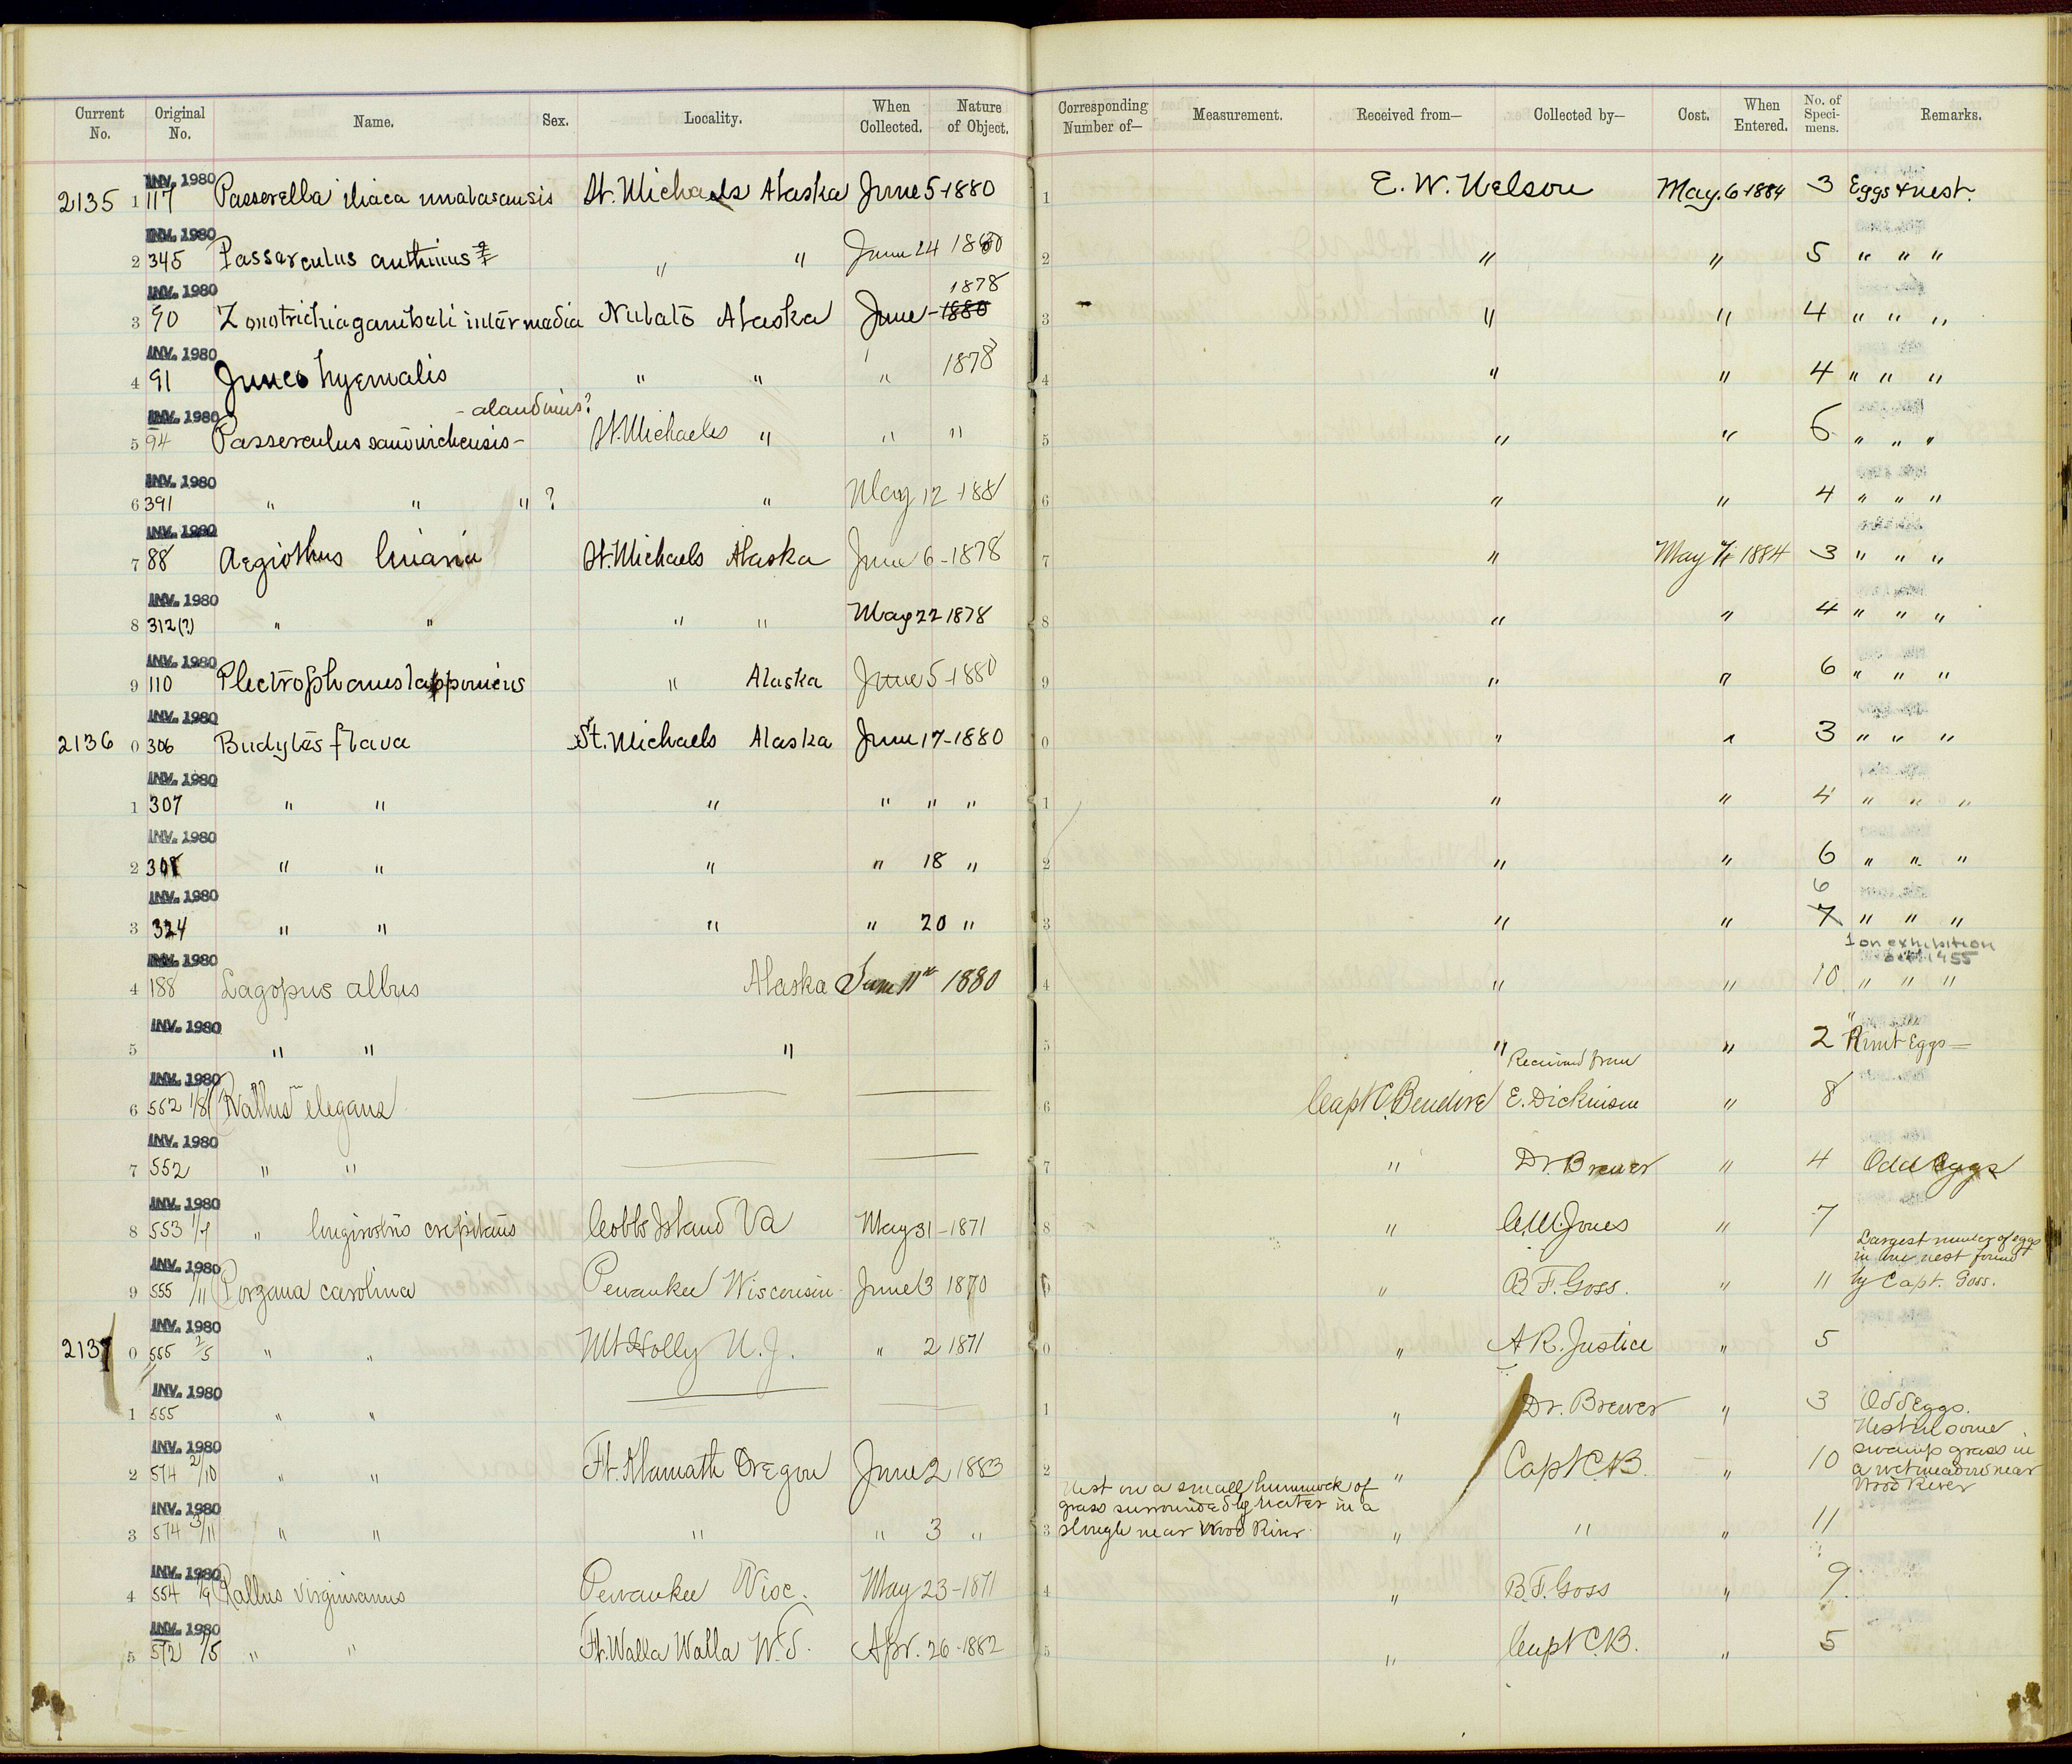 Current No. Original No. Name. Sex. Locality. When Collected. Nature of Object. Corresponding Number of— Measurement. Received from— Collected by— Cost. When Entered. No. of Speci-mens. Remarks.
INV. 1980
2135 1 117 Passerella iliaca unalascensis St. Michaels Alaska June 5-1880 1 E. W. Nelson May. 6-1884 3 Eggs & nest.
INV. 1980
2 345 Passerculus anthinus " " June 24 1880 2 " " 5 " " "
INV. 1980 1878
3 90 Zonotrichia gambeli intermedia Nulato Alaska June - 1880 3 " " 4 " " "
INV. 1980
4 91 Junco hyemalis " " " 1878 4 " " 4 " " "
INV. 1980 - alaudinus?
5 94 Passerculus sandwichensis - St. Michaels " " " 5 " " 6 " " "
INV. 1980
6 391 " " " ? " May 12-1881 6 " " 4 " " "
INV. 1980
7 88 Aegiothus linaria St. Michaels Alaska June 6-1878 7 " May 7 1884 3 " " "
INV. 1980
8 312(?) " " " " May 22 1878 8 " " 4 " " "
INV. 1980
9 110 Plectrophanes lapponicus " Alaska June 5-1880 9 " " 6 " " "
INV. 1980
2136 0 306 Budytes flava St. Michaels Alaska June 17-1880 0 " " 3 " " "
INV. 1980
1 307 " " " " " " 1 " " 4 " " "
INV. 1980
2 308 " " " " 18 " 2 " " 6 " " "
INV. 1980 6
3 324 " " " " 20 " 3 " " 7 " " "
INV. 1980 1 on exhibition 1955
4 188 Lagopus albus Alaska June 11th 1880 4 " " 10 " " "
INV. 1980
5 " " " 5 " " 2 "Runt Eggs—
INV. 1980 Received from
6 552 1/8 Rallus elegans 6 Capt C. Bendire E. Dickinson " 8
INV. 1980
7 552 " " 7 " Dr Brewer " 4 Odd Eggs
INV. 1980
8 553 1/7 " longirostris crepitans Cobbs Island Va May 31-1871 8 " C.M. Jones " 7
INV. 1980 Largest number of eggs in one nest found
9 555 1/11 Porzana carolina Pewaukee Wisconsin June 3 1870 " B. F. Goss. " 11 by Capt. Goss.
INV. 1980
2137 0 555 2/5 " " Mt Holly N. J. " 2 1871 0 " A R. Justice " 5
INV. 1980
1 555 " " 1 " Dr. Brewer " 3 Odd Eggs.
INV. 1980
2 574 2/10 " " Ft. Klamath Oregon June 2 1883 2 " Capt C.B. " 10 Nest in some swamp grass in a wet meadow near Wood River
INV. 1980
3 574 3/11 " " " " 3 " 3 Nest on a small hummock of grass surrounded by water in a slough near Wood River " " " 11
INV. 1980
4 554 1/9 Rallus virginianus Pewaukee Wisc. May 23-1871 4 " B. F. Goss " 9
INV. 1980
5 572 1/5 " " Ft. Walla Walla W. T. Apr. 26-1882 5 " Capt C.B. " 5